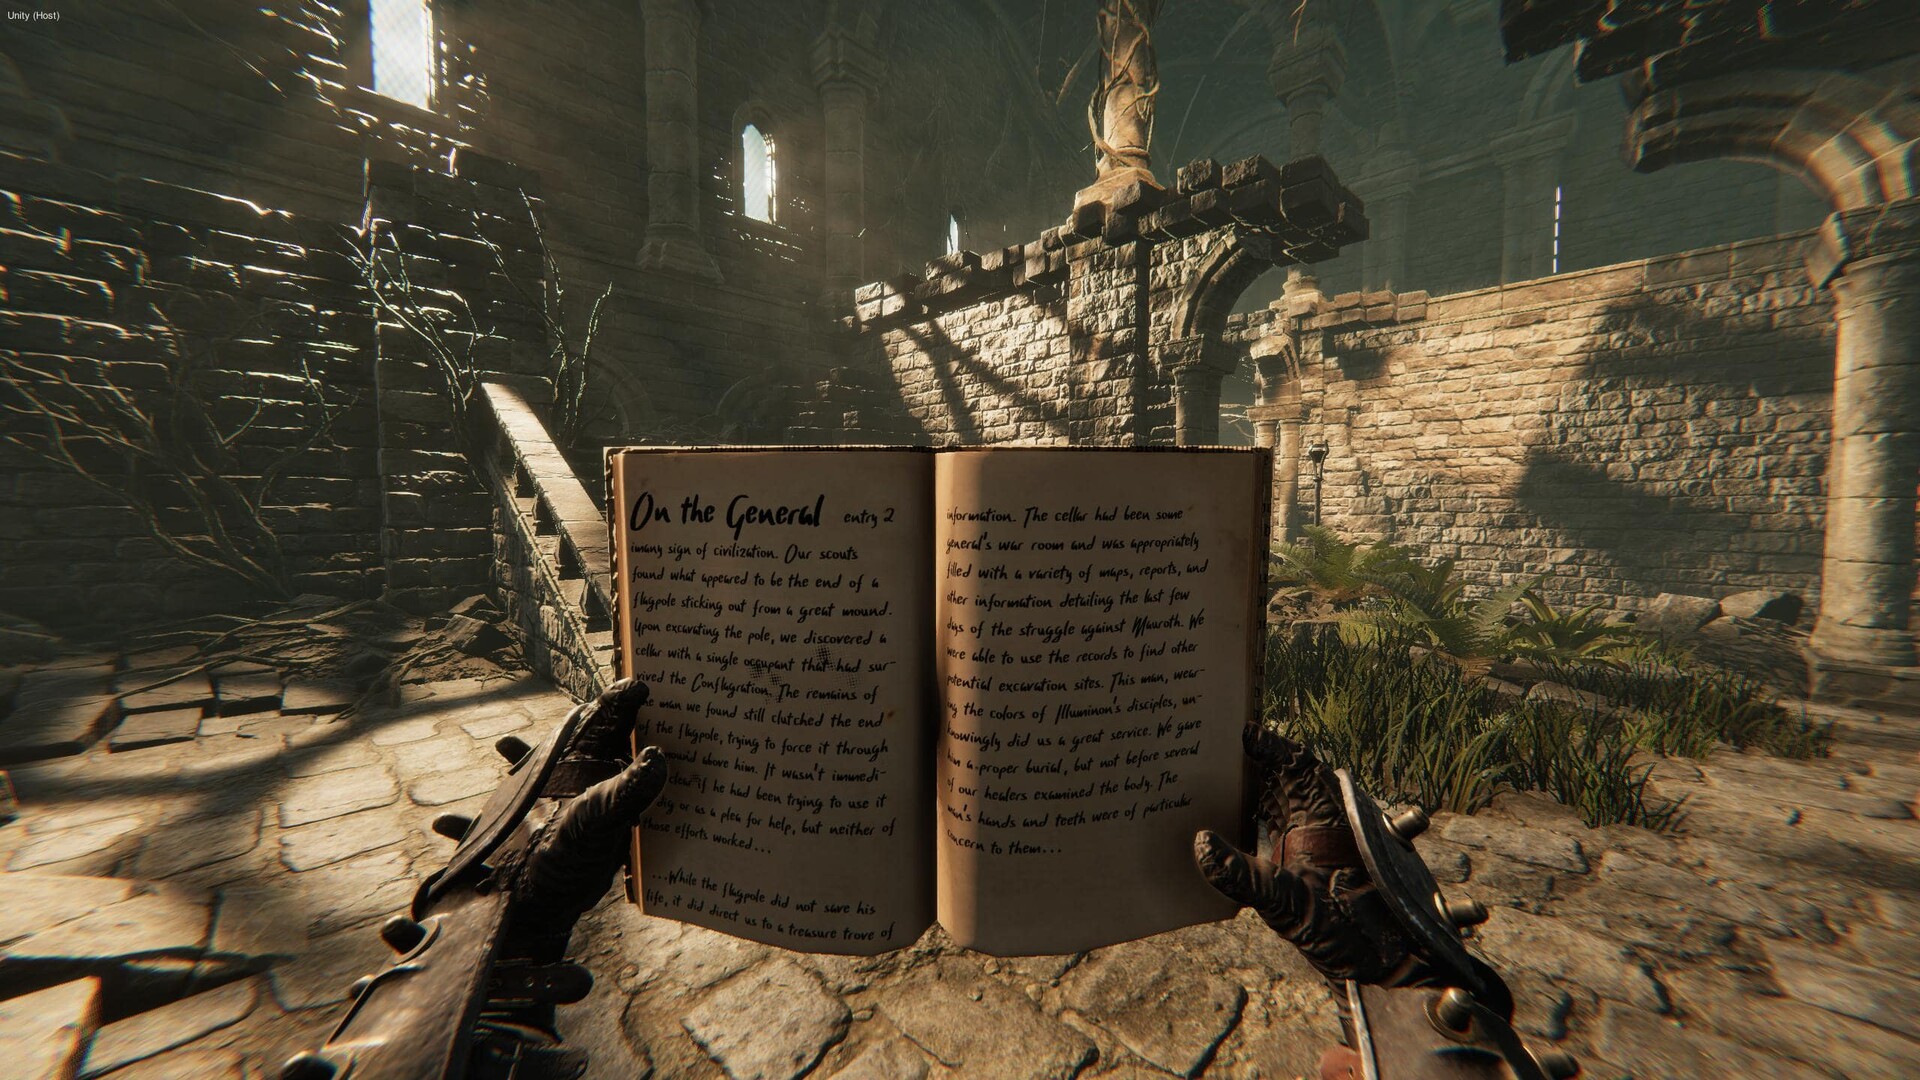 Unity (Host)
On the General entry 2
imany sign of civilization. Our scouts
found what appeared to be the end of a
flagpole sticking out from a great mound.
Upon excavating the pole, we discovered a
cellar with a single occupant that had sur-
vived the Conflagration. The remains of
he man we found still clutched the end
of the flagpole, trying to force it through
mound above him. It wasn't immedi-
clear if he had been trying to use it
dig or as a plea for help, but neither of
those efforts worked...
...While the flagpole did not save his
life, it did direct us to a treasure trove of
information. The cellar had been some
general's war room and was appropriately
filled with a variety of maps, reports, and
other information detailing the last few
days of the struggle against Mauroth. We
were able to use the records to find other
potential excavation sites. This man, wear-
ing the colors of Illuminon's disciples, un-
knowingly did us a great service. We gave
him a proper burial, but not before several
of our healers examined the body. The
man's hands and teeth were of particular
concern to them...